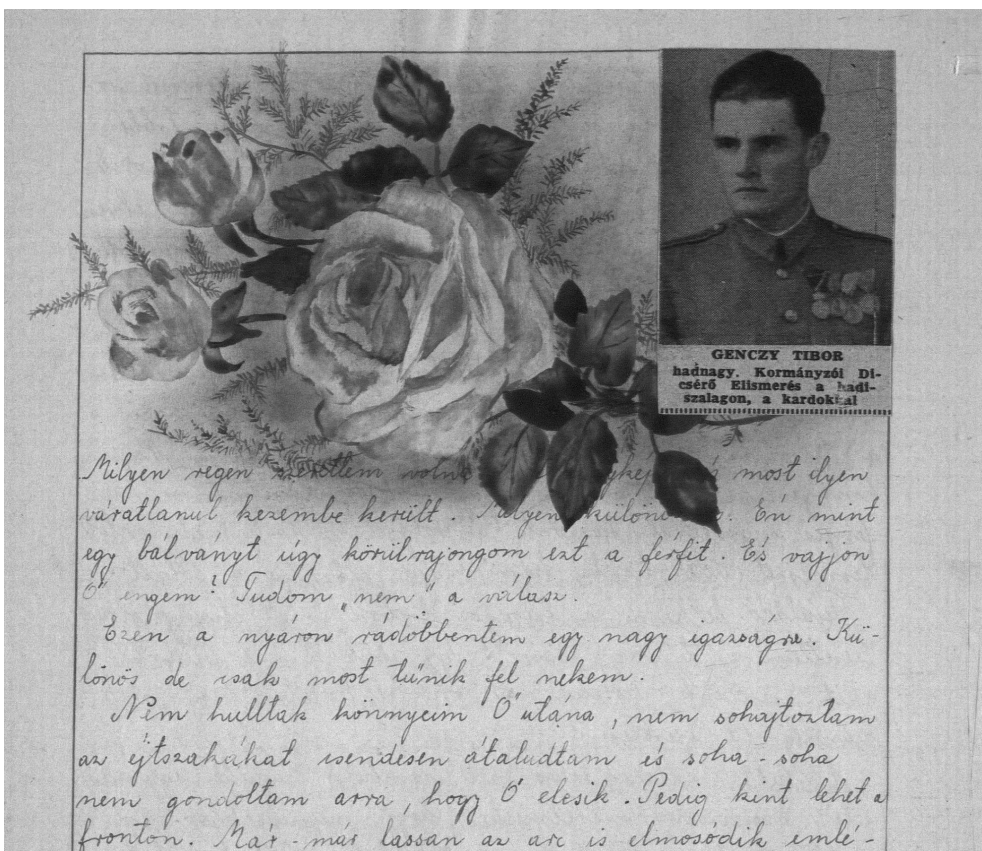 GENCZY TIBOR
hadnagy. Kormányzói Di-
csérő Elismerés a hadi-
szalagon, a kardokkal
Milyen regen szerettem volna most ilyen
váratlanul kezembe került. Milyen különös. Én mint
egy bálványt úgy körülrajongom ezt a férfit. És vajjon
Ő engem? Tudom „nem" a válasz.
Ezen a nyáron rádöbbentem egy nagy igazságra. Kü-
lönös de csak most tűnik fel nekem.
Nem hulltak könnyeim Ő utána, nem sohajtoztam
az éjtszakákat csendesen átaludtam és soha - soha
nem gondoltam arra, hogy Ő elesik. Pedig kint lehet a
fronton. Már - már lassan az arc is elmosódik emlé-